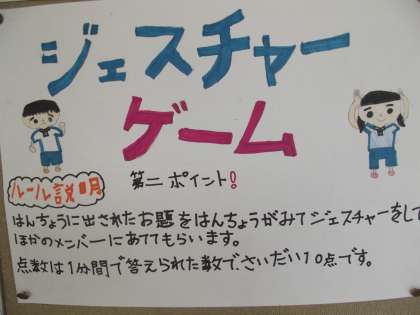 ジェスチャー
ゲーム
第二ポイント!
ルール説明
はんちょうに出されたお題をはんちょうがみてジェスチャーをして
ほかのメンバーにあててもらいます。
点数は1分間で答えられた数でさいだい10点です。